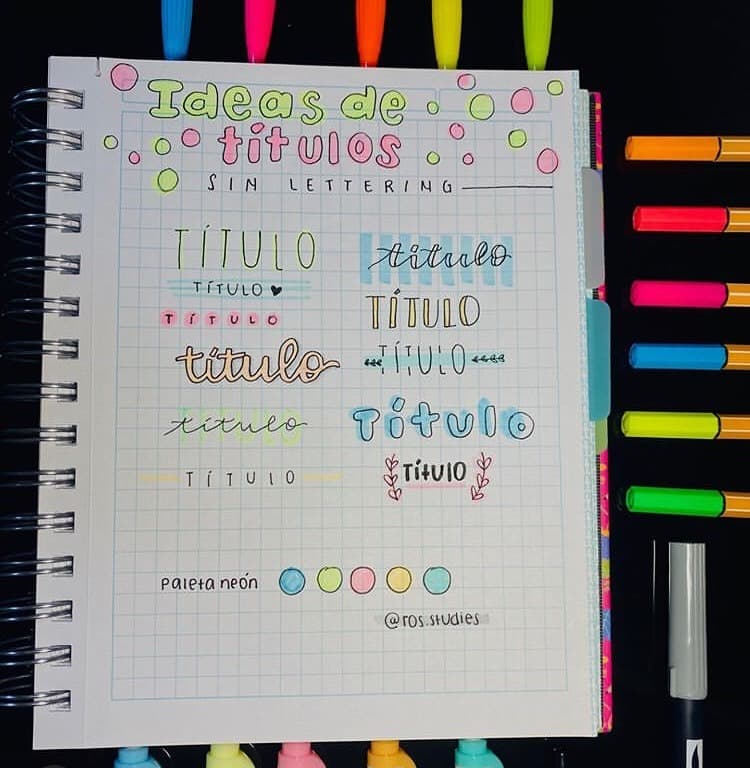 Ideas de
títulos
SIN LETTERING
TÍTULO
TÍTULO
TÍTULO
título
título
TÍTULO
título
TÍTULO
TÍTULO
Título
TítUlO
Paleta neón
@ros.studies